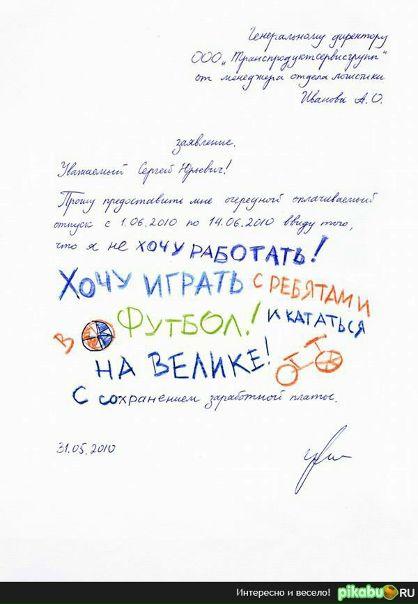 Генеральному директору
ООО „Транспродуктсервисгрупп“
от менеджера отдела логистики
Иванова А.О.
заявление.
Уважаемый Сергей Юрьевич!
Прошу предоставить мне очередной оплачиваемый
отпуск с 1.06.2010 по 14.06.2010 ввиду того,
что я не хочу РАБОТАТЬ!
ХОЧУ ИГРАТЬ С РЕБЯТАМИ
В ФУТБОЛ! И КАТАТЬСЯ
НА ВЕЛИКЕ!
С сохранением заработной платы.
31.05.2010
Интересно и весело! pikabu.RU